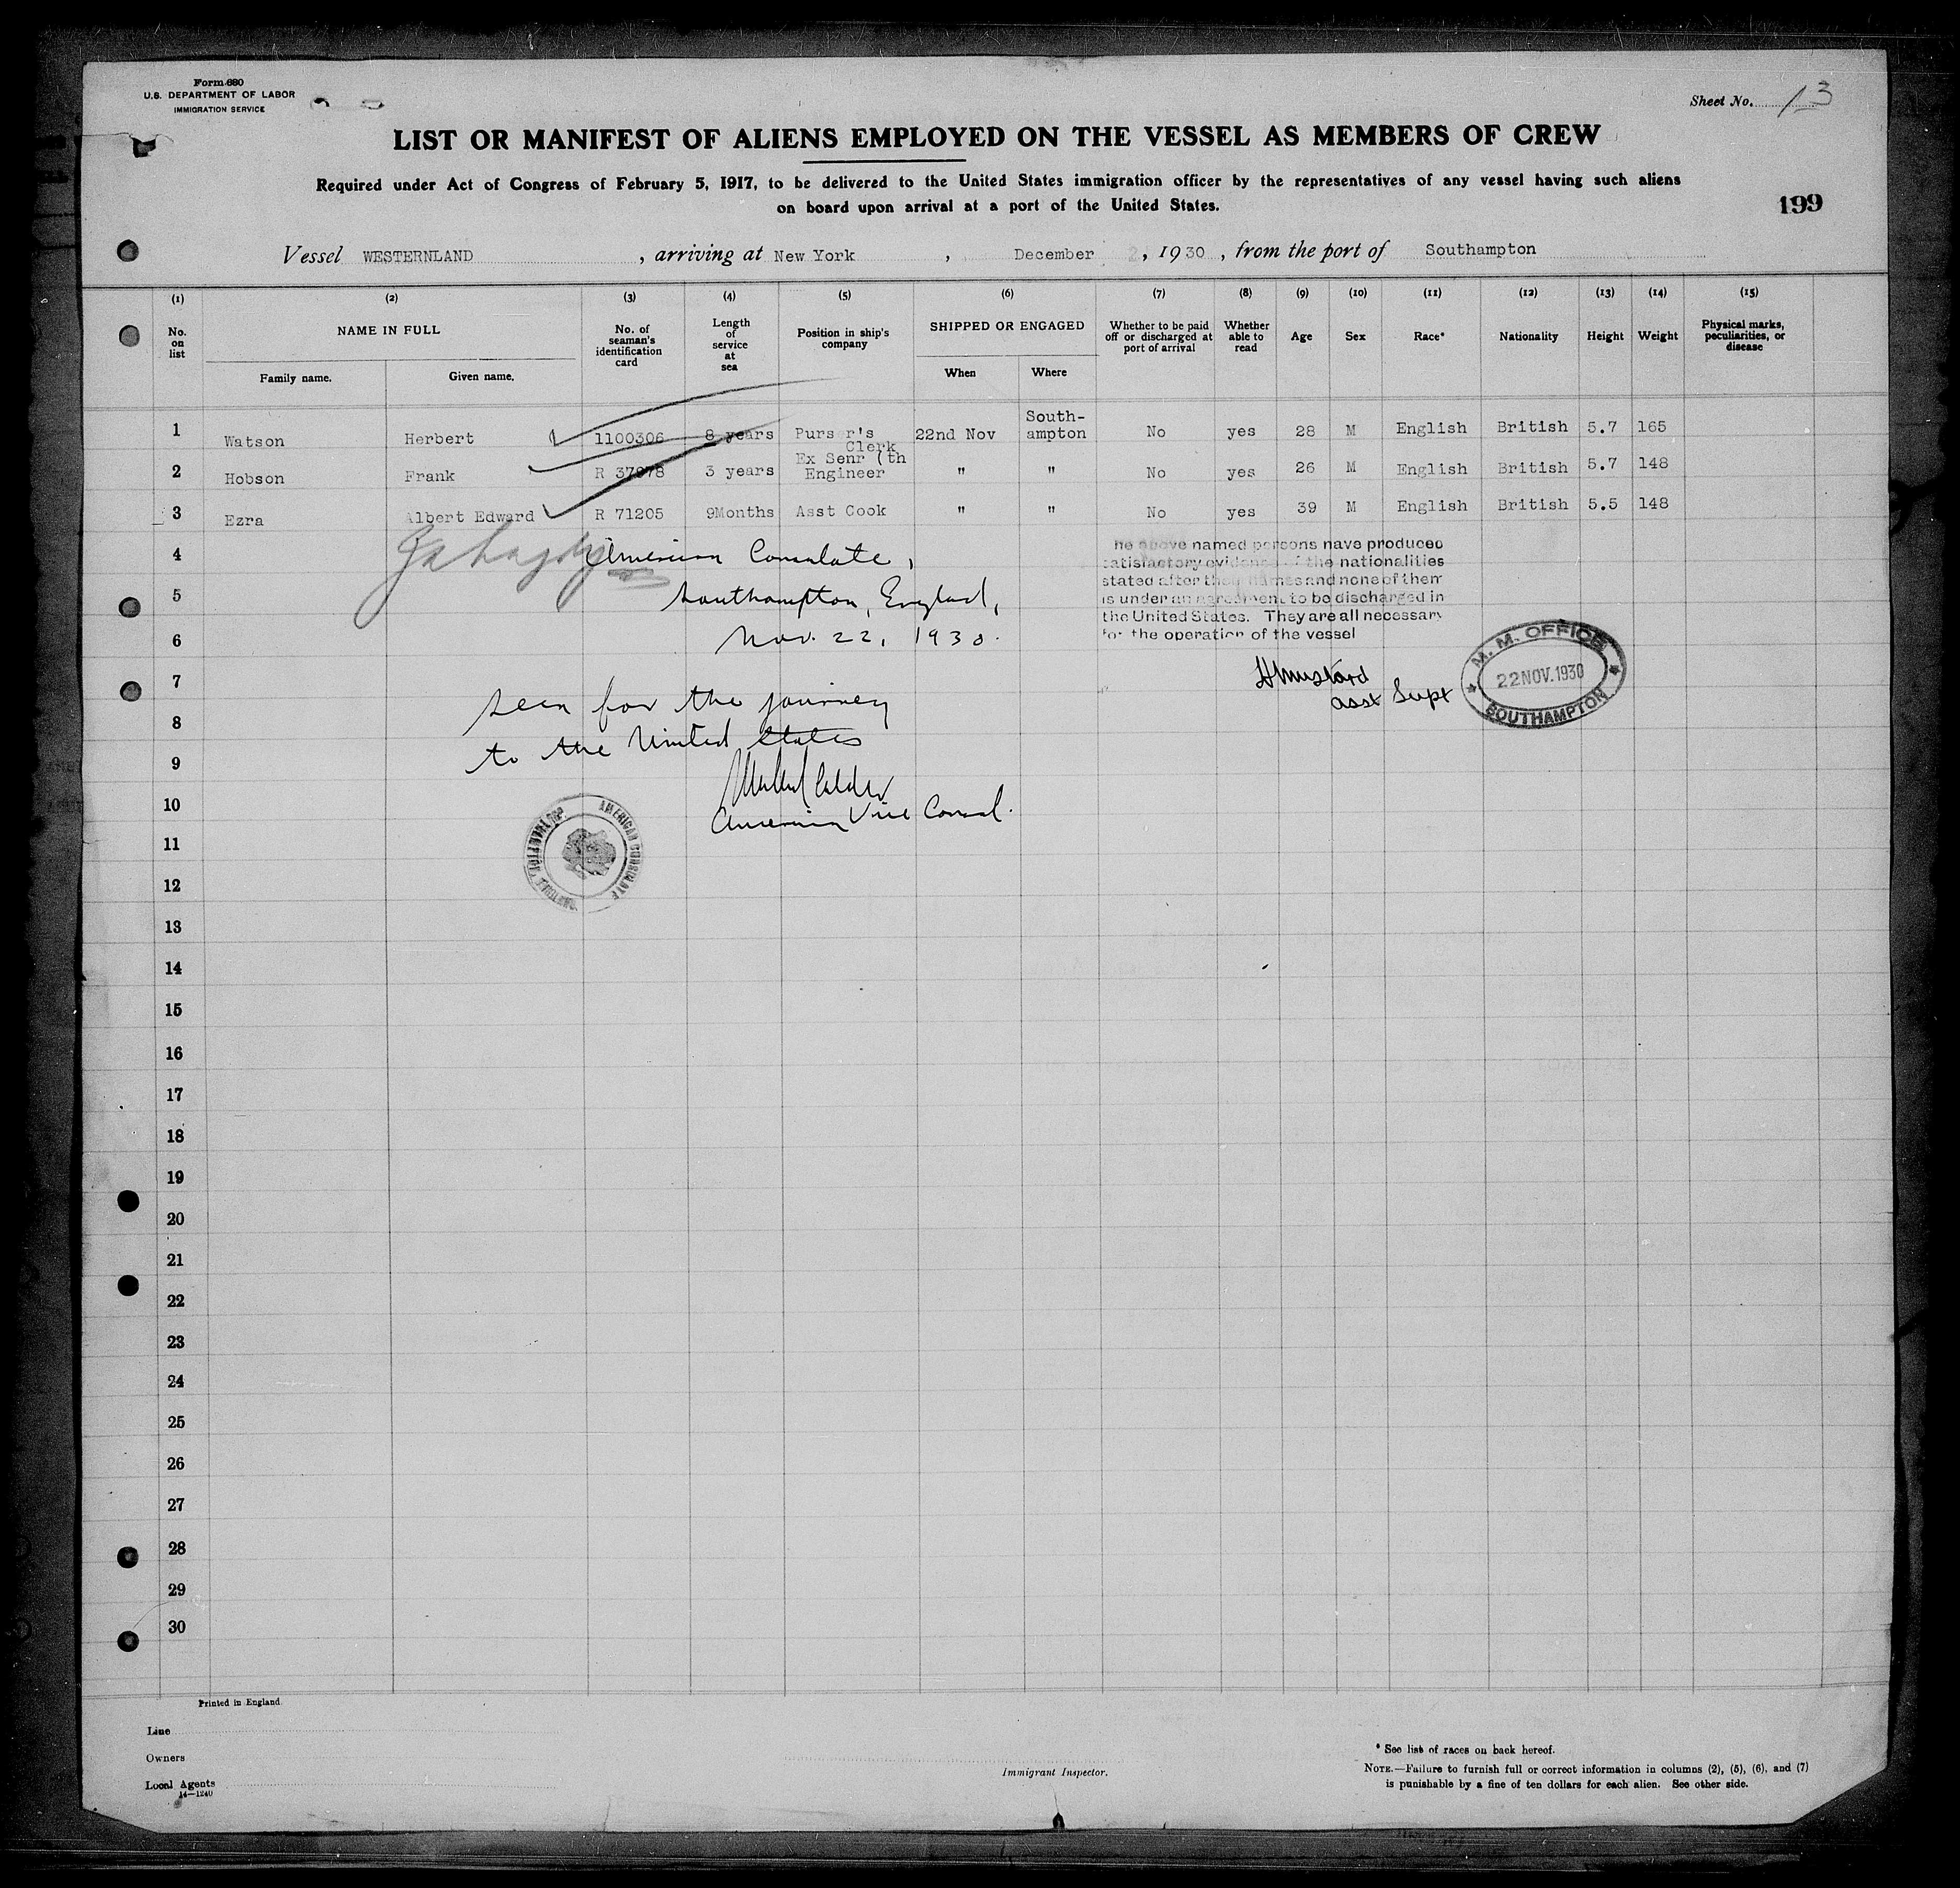 Form 680
U.S. DEPARTMENT OF LABOR
IMMIGRATION SERVICE
Sheet No. 13
LIST OR MANIFEST OF ALIENS EMPLOYED ON THE VESSEL AS MEMBERS OF CREW
Required under Act of Congress of February 5, 1917, to be delivered to the United States immigration officer by the representatives of any vessel having such aliens
on board upon arrival at a port of the United States.
199
Vessel WESTERNLAND , arriving at New York , December 2 , 1930 , from the port of Southampton
(1) (2) (3) (4) (5) (6) (7) (8) (9) (10) (11) (12) (13) (14) (15)
No. on list
NAME IN FULL
Family name. Given name.
No. of seaman's identification card
Length of service at sea
Position in ship's company
SHIPPED OR ENGAGED
When Where
Whether to be paid off or discharged at port of arrival
Whether able to read
Age Sex Race* Nationality Height Weight
Physical marks, peculiarities, or disease
1 Watson Herbert 1100306 8 years Purs r's Clerk 22nd Nov South-ampton No yes 28 M English British 5.7 165
2 Hobson Frank R 37978 3 years Ex Senr (th Engineer " " No yes 26 M English British 5.7 148
3 Ezra Albert Edward R 71205 9Months Asst Cook " " No yes 39 M English British 5.5 148
4
5
6
7
8
9
10
11
12
13
14
15
16
17
18
19
20
21
22
23
24
25
26
27
28
29
30
American Consulate,
Southampton, England,
Nov. 22, 1930.
Seen for the journey
to the United States
American Vice Consul.
AMERICAN CONSULATE
he above named persons have produced
satisfactory evidence of the nationalities
stated after their names and none of them
is under an agreement to be discharged in
the United States. They are all necessary
for the operation of the vessel
H Mustard
Asst Supt
M. M. OFFICE
22 NOV. 1930
SOUTHAMPTON
Printed in England
Line
Owners
Local Agents
14—1240
Immigrant Inspector.
* See list of races on back hereof.
NOTE.—Failure to furnish full or correct information in columns (2), (5), (6), and (7)
is punishable by a fine of ten dollars for each alien. See other side.